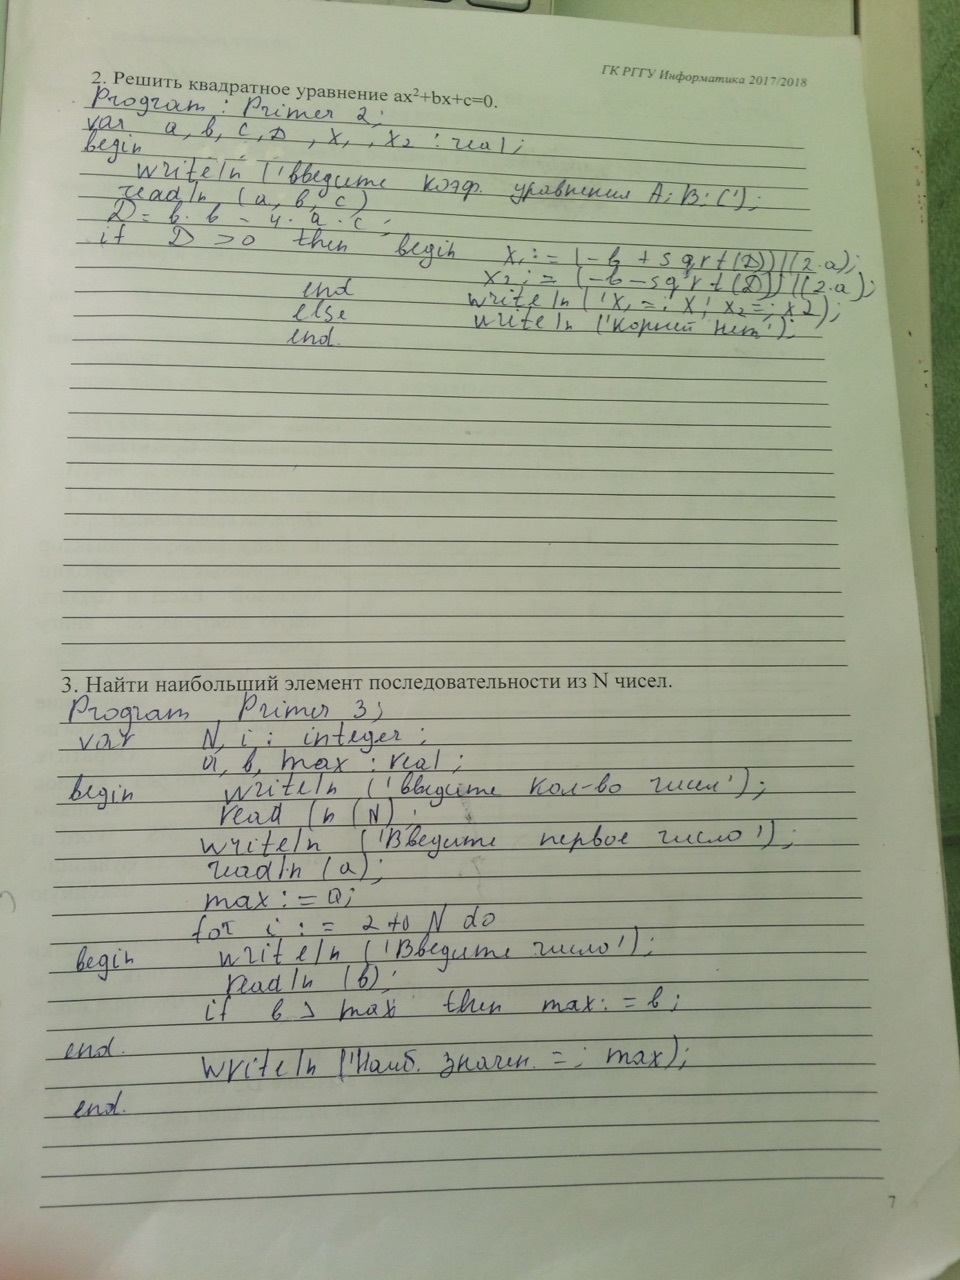 ГК РГГУ Информатика 2017/2018
2. Решить квадратное уравнение ax²+bx+c=0.
Program : Primer 2;
var a, b, c, D, x₁, x₂ : real;
begin
writeln ('введите коэф. уравнения A; B; C');
readln (a, b, c)
D = b · b - 4 · a · c ;
if D > 0 then begin x₁ := (-b + sqrt(D))/(2·a);
x₂ := (-b - sqrt(D))/(2·a);
end writeln ('x₁ =; x₁' x₂ =; x2);
else writeln ('Корней нет');
end.
3. Найти наибольший элемент последовательности из N чисел.
Program Primer 3;
var N, i : integer;
a, b, max : real;
begin writeln ('введите кол-во чисел');
readln (N) ;
writeln ('Введите первое число');
readln (a);
max := a;
for i := 2 to N do
begin writeln ('Введите число');
readln (b);
if b > max then max := b;
end.
writeln ('Наиб. значен. =; max);
end.
7